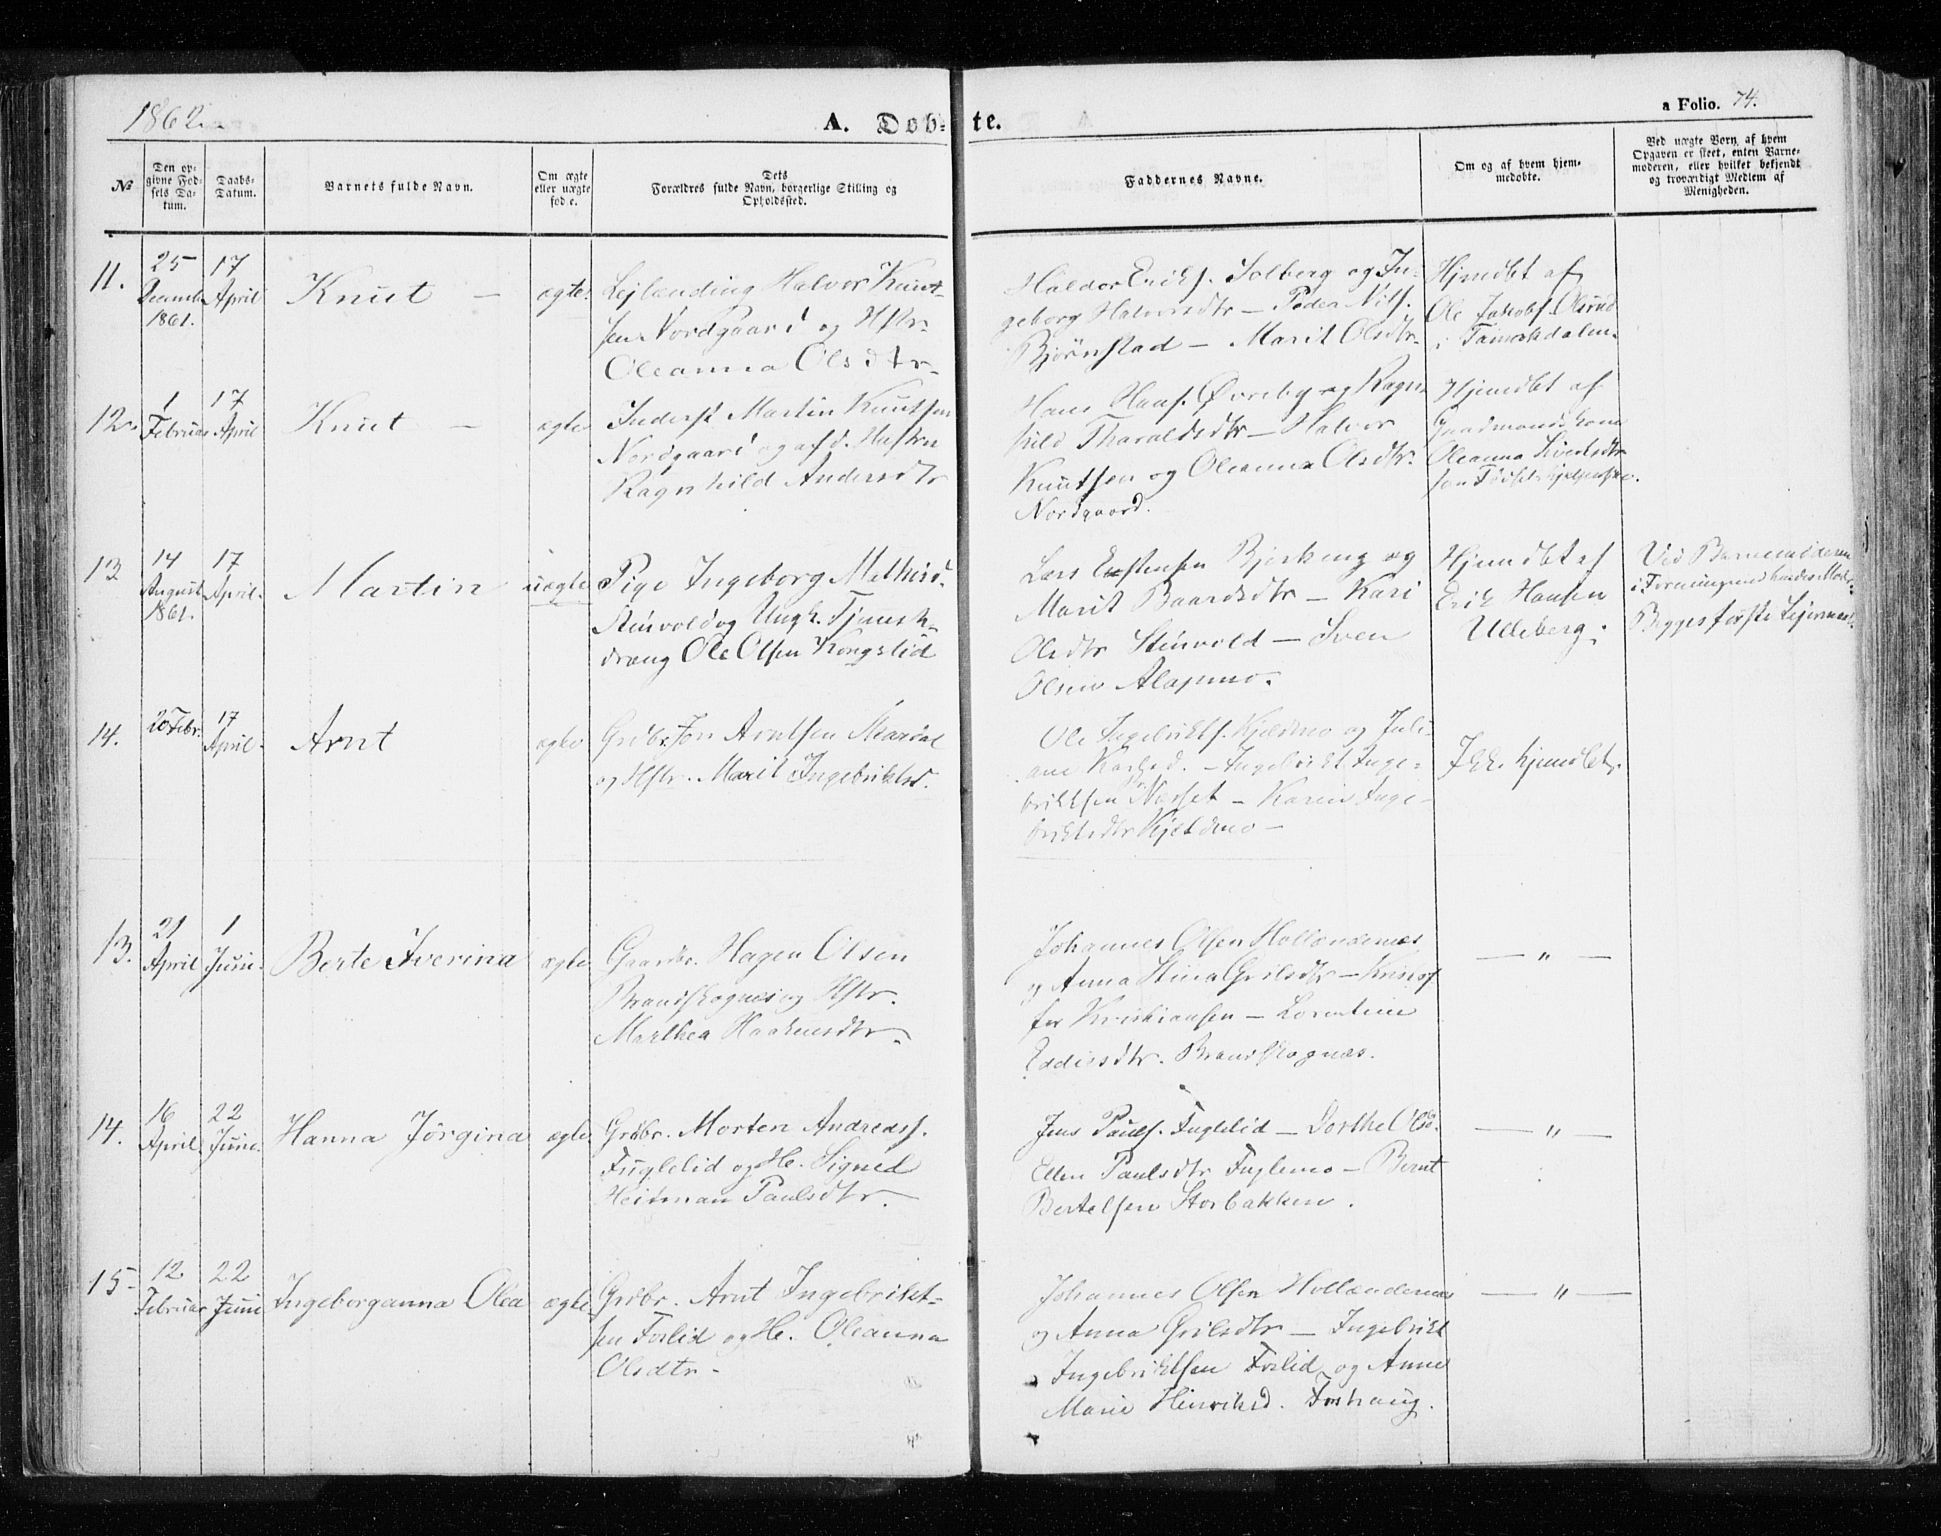 1862.
A. Døb-te.
a Folio. 74.
No
Den opgivne Fødsels Datum.
Daabs-Datum.
Barnets fulde Navn.
Om ægte eller uægte fød e.
Dets Forældres fulde Navn, borgerlige Stilling og Opholdssted.
Faddernes Navne.
Om og af hvem hjemmedøbte.
Ved uægte Børn, af hvem Opgaven er skeet, enten Barnemoderen, eller hvilket bekjendt og troværdigt Medlem af Menigheden.
11.
25
Decemb.
1861.
17
April
Knut —
ægte
Lejlænding Halvor Knut-
sen Nordgaard og Hstr.
Oleanna Olsdtr.
Haldor Eriks. Solberg og In-
geborg Halvorsdtr — Peder Nils.
Bjørnstad — Marit Olsdtr.
Hjmdbt af
Ole Jakobs. Olsrud
i Tamokdalen.
12.
1
Februar
17
April
Knut —
ægte
Inderst Martin Knutsen
Nordgaard og afd. Hustru
Ragnhild Andersdtr
Hans Hans. Øvreby og Ragn-
hild Tharaldsdtr — Halvor
Knutsen og Oleanna Olsdtr.
Nordgaard.
Hjemdbt af
Gaardmandskone
Oleanna Sivertsdtr
13
14
August
1861.
17
April.
Martin
uægte
Pige Ingeborg Mathisd.
Steinvold og Ungk. Tjeneste-
dreng Ole Olsen Kongslid
Lars Estensen Bjerkeng og
Marit Baardsdtr — Kari
Olsdtr Steinvold — Sven
Olsen Alapmo.
Hjemdbt af
Erik Hansen
Ulleberg.
Ved Barnemoderen
i Forening med hendes Moder.
Begges første Lejermaal.
14.
20 Febr.
17
April.
Arnt
ægte
Grdbr. Jon Arntsen Maardal
og Hstr. Marit Ingebriktsd.
Ole Ingebrikts. Kjeldmo og Juli-
ane — Ingebrikt Inge-
briktsen Næsset — Karen Inge-
briktsdtr Kjeldmo —
Ikke hjemdbt.
13.
21
April
1
Juni.
Berte Iverina
ægte
Gaardbr. Hagen Olsen
Brandskognes og Hstr.
Marthea Haakensdtr.
Johannes Olsen Hollændernæs
og Anna Stina Grilsdtr — Kristof
fer Kristiansen — Lorentine
Eddisdtr. Brandskognæs.
— „ —
14.
16
April.
22
Juni.
Hanna Jørgina
ægte
Grdbr. Morten Andreass.
Fuglelid og H. Signel
Heitman Paulsdtr.
Jens Pauls. Fuglelid — Dorthe Olsd.
Ellen Paulsdtr Fuglemo — Bernt
Bertelsen Storbakken.
— „ —
15
12
Februar
22
Juni
Ingeborganna Olea
ægte
Grdbr. Arnt Ingebrikt-
sen Forlid og H. Oleanna
Olsdtr —
Johannes Olsen Hollændernæs
og Anna Grilsdtr — Ingebrikt
Ingebriktsen Forlid og Anne
Marie Henriksd. Foshaug.
— „ —